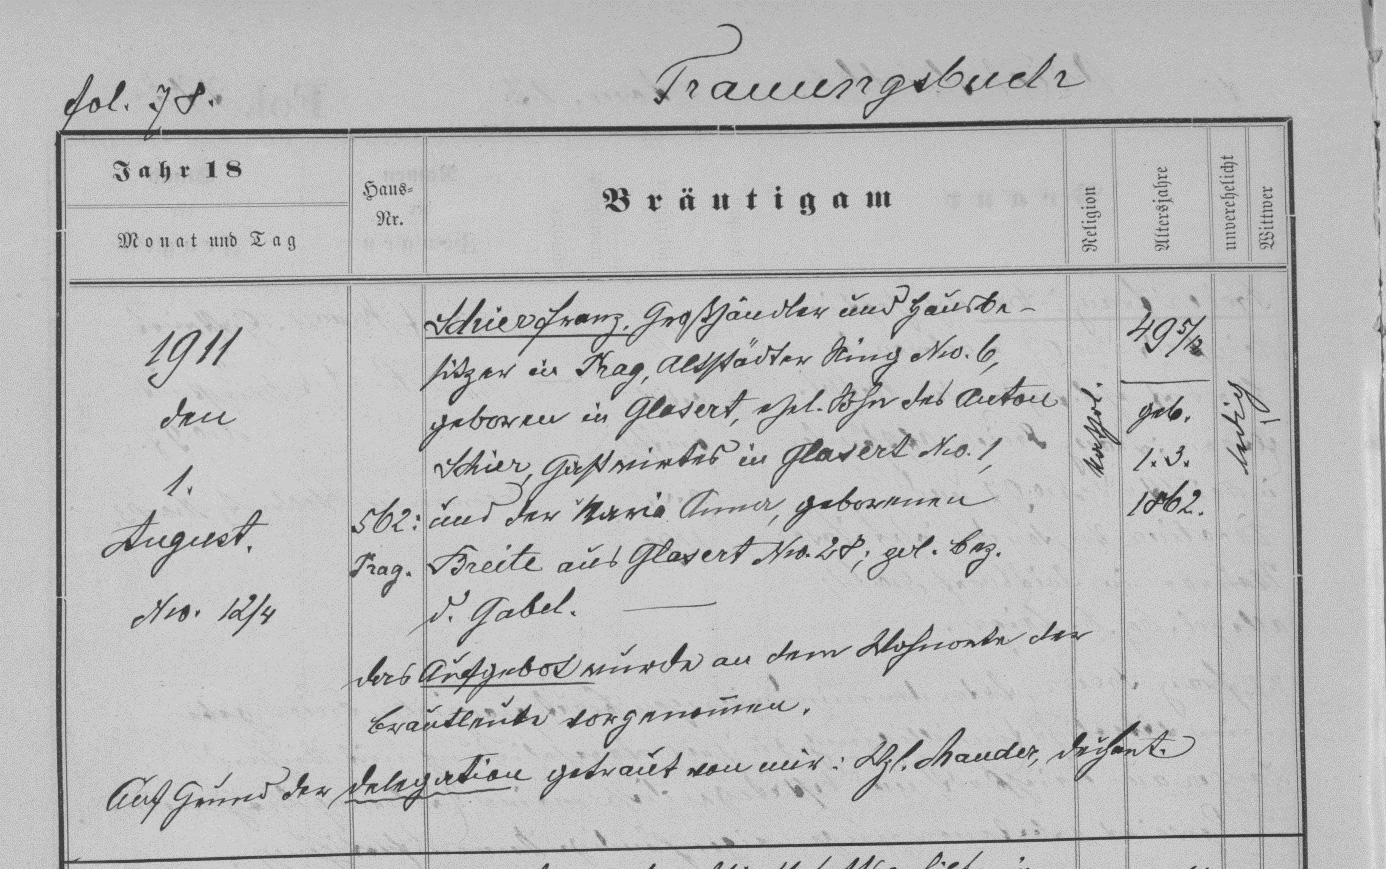 fol. 78.
Trauungsbuch
Jahr 18
Monat und Tag
Haus-
Nr.
Bräutigam
Religion
Altersjahre
unverehelicht
Wittwer
1911
den
1.
August.
No. 12/4
562:
Prag.
Schier Franz, Großhändler und Hausbe-
sitzer in Prag, Altstädter Ring No. 6,
geboren in Glasert, ehel. Sohn des Anton
Schier, Gastwirtes in Glasert No. 1,
und der Maria Anna, geborenen
Breite aus Glasert No. 28, pol. Bez.
d. Gabel.
kathol.
49 5/12
geb.
1.3.
1862.
ledig
das Aufgebot wurde an dem Wohnorte der
Brautleute vorgenommen.
Auf Grund der Delegation getraut von mir: Mander, Dechant.